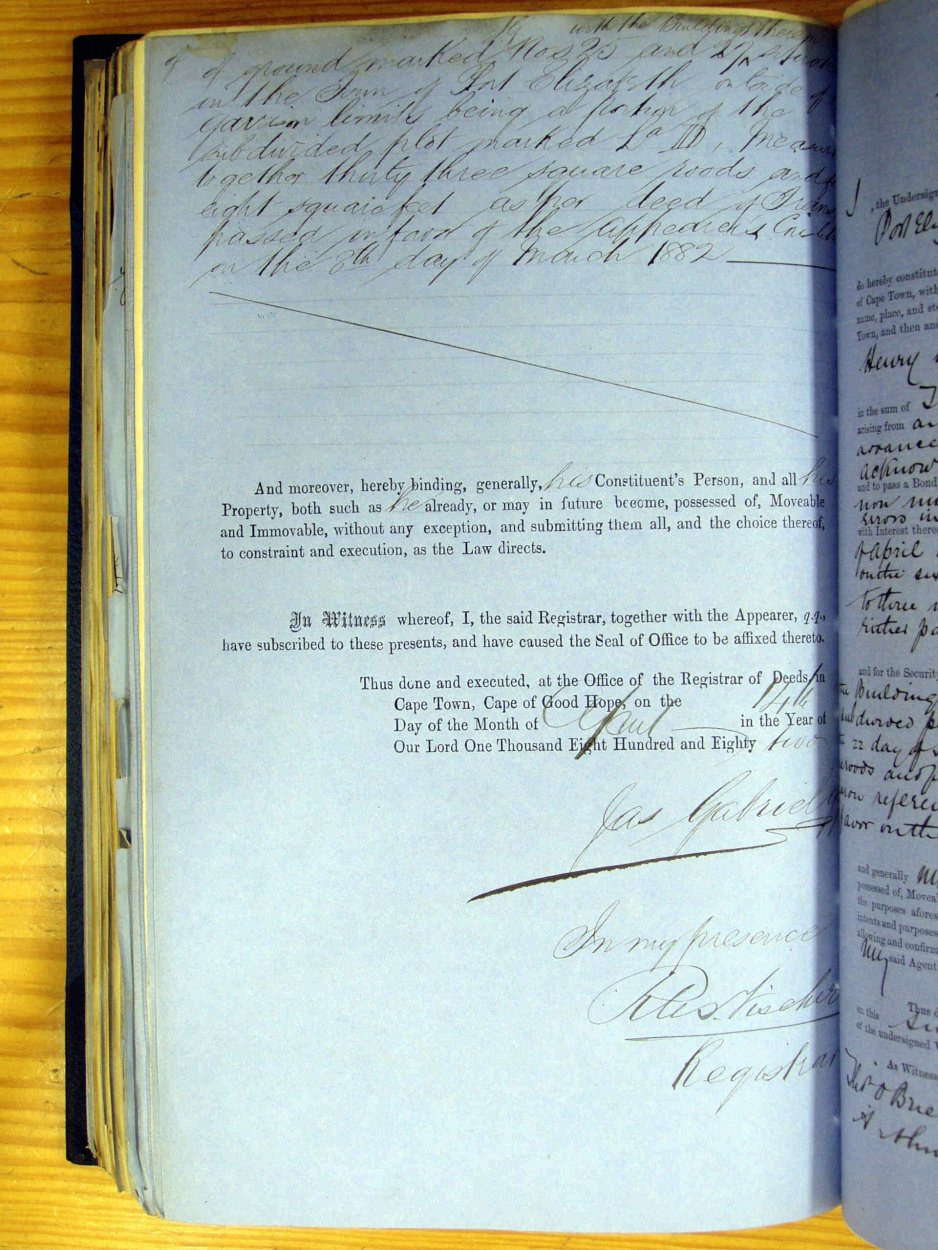 with the Buildings thereon
of ground marked Nos 25 and 27
in the Town of Port Elizabeth outside of
garrison limits being a portion of the
subdivided plot marked La III, Measur
together thirty three square roods and
eight square feet as per deed of Trans
passed in favor of the appearer's
on the 8th day of March 1882
And moreover, hereby binding, generally, his Constituent's Person, and all his
Property, both such as he already, or may in future become, possessed of, Moveable
and Immovable, without any exception, and submitting them all, and the choice thereof,
to constraint and execution, as the Law directs.
In Witness whereof, I, the said Registrar, together with the Appearer, q.q.,
have subscribed to these presents, and have caused the Seal of Office to be affixed thereto.
Thus done and executed, at the Office of the Registrar of Deeds, in
Cape Town, Cape of Good Hope, on the 14th
Day of the Month of April in the Year of
Our Lord One Thousand Eight Hundred and Eighty two
Jas Gabriel
In my presence
Vischer
Registrar
I, the Undersign
Port Eli
do hereby constitute
of Cape Town, with
name, place, and ste
Town, and then and
Henry
in the sum of
arising from
advance
acknow
and to pass a Bond
non nu
errors in
with Interest there
of April
on the six
to three
either pa
and for the Security
Building
subdivided p
22 day of
roods and
refere
favor on th
and generally my
possessed of, Movea
the purposes afores
intents and purposes
allowing and confirm
My said Agent
Thus d
on this
of the undersigned W
As Witness
O Brie
Arthur